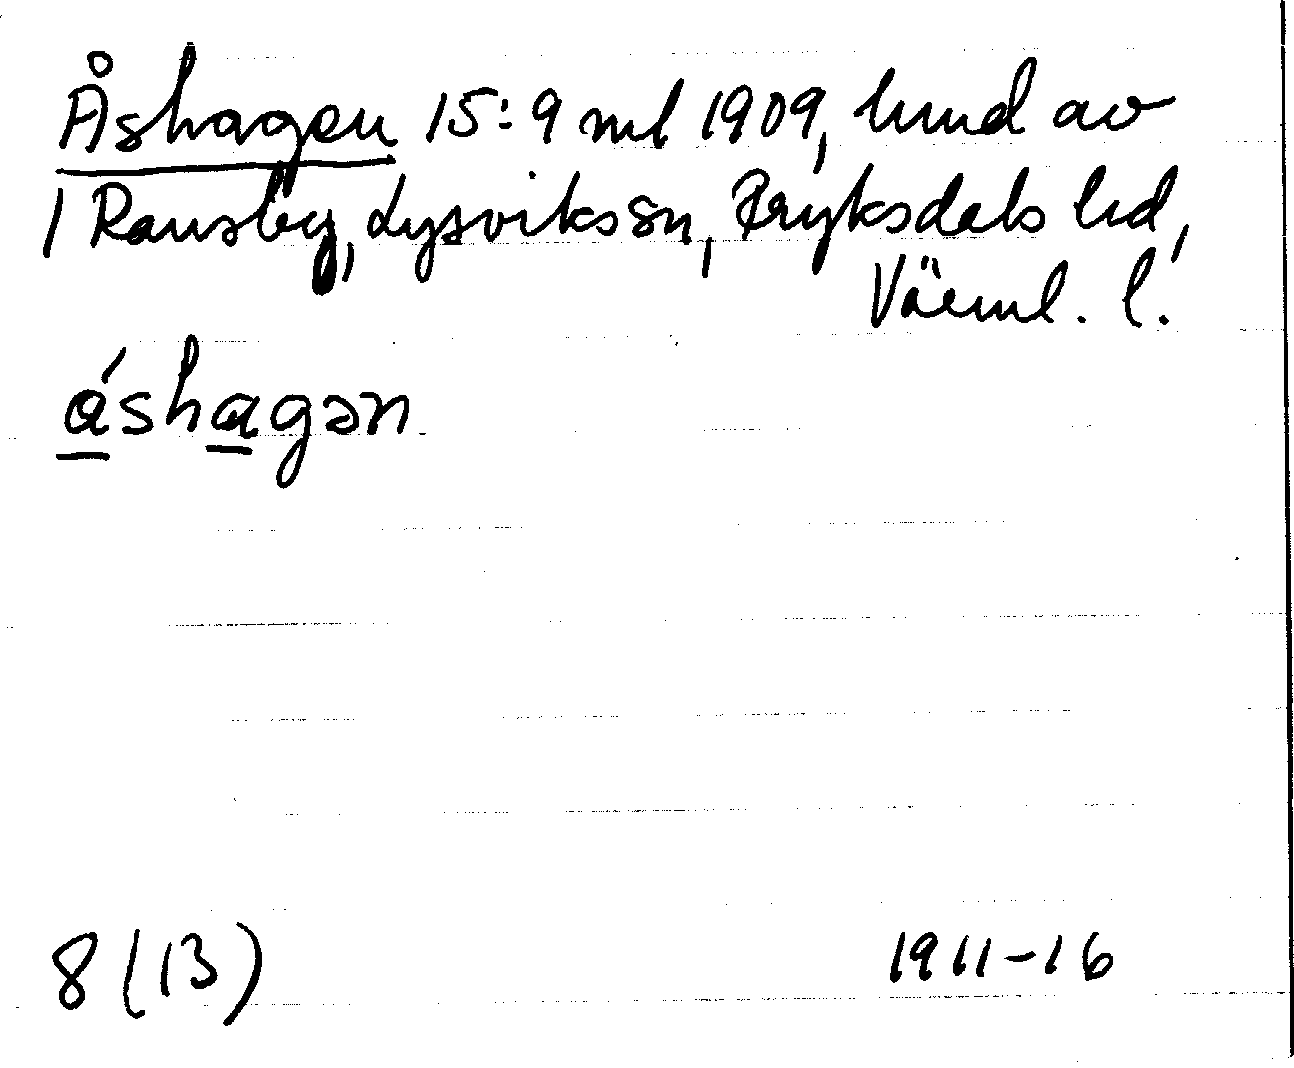 Åshagen 15:9 ml 1909, hmd av
1 Ransby, Lysviks sn, Fryksdals hd,
Värml. l.
áshagən
8 (13) 1911-16